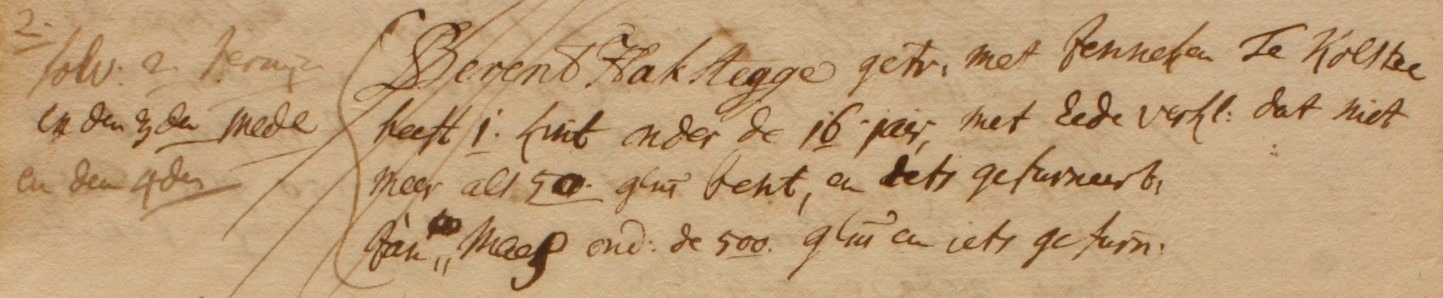 2.
solv. 2. termijn
en den 3den mede
en den 4den
Berent Hakstegge getr. met Jenneken Te Kolstee
heeft 1. kint onder de 16 jair, met Eede verkl: dat niet
meer als 500. glns besit, en iets gefurneert,
Jan Maes ond: de 500. glns en iets gefurn: